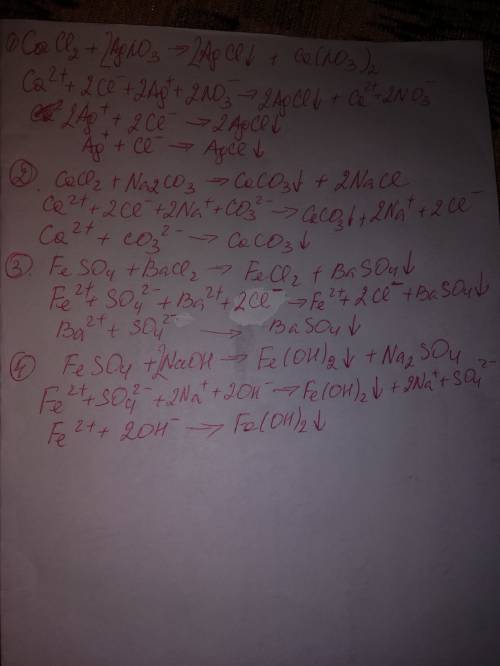 1) CaCl₂ + 2AgNO₃ → 2AgCl↓ + Ca(NO₃)₂
Ca²⁺ + 2Cl⁻ + 2Ag⁺ + 2NO₃⁻ → 2AgCl↓ + Ca²⁺ + 2NO₃⁻
2Ag⁺ + 2Cl⁻ → 2AgCl↓
Ag⁺ + Cl⁻ → AgCl↓
2. CaCl₂ + Na₂CO₃ → CaCO₃↓ + 2NaCl
Ca²⁺ + 2Cl⁻ + 2Na⁺ + CO₃²⁻ → CaCO₃↓ + 2Na⁺ + 2Cl⁻
Ca²⁺ + CO₃²⁻ → CaCO₃↓
3. FeSO₄ + BaCl₂ → FeCl₂ + BaSO₄↓
Fe²⁺ + SO₄²⁻ + Ba²⁺ + 2Cl⁻ → Fe²⁺ + 2Cl⁻ + BaSO₄↓
Ba²⁺ + SO₄²⁻ → BaSO₄↓
4) FeSO₄ + 2NaOH → Fe(OH)₂↓ + Na₂SO₄
Fe²⁺ + SO₄²⁻ + 2Na⁺ + 2OH⁻ → Fe(OH)₂↓ + 2Na⁺ + SO₄²⁻
Fe²⁺ + 2OH⁻ → Fe(OH)₂↓